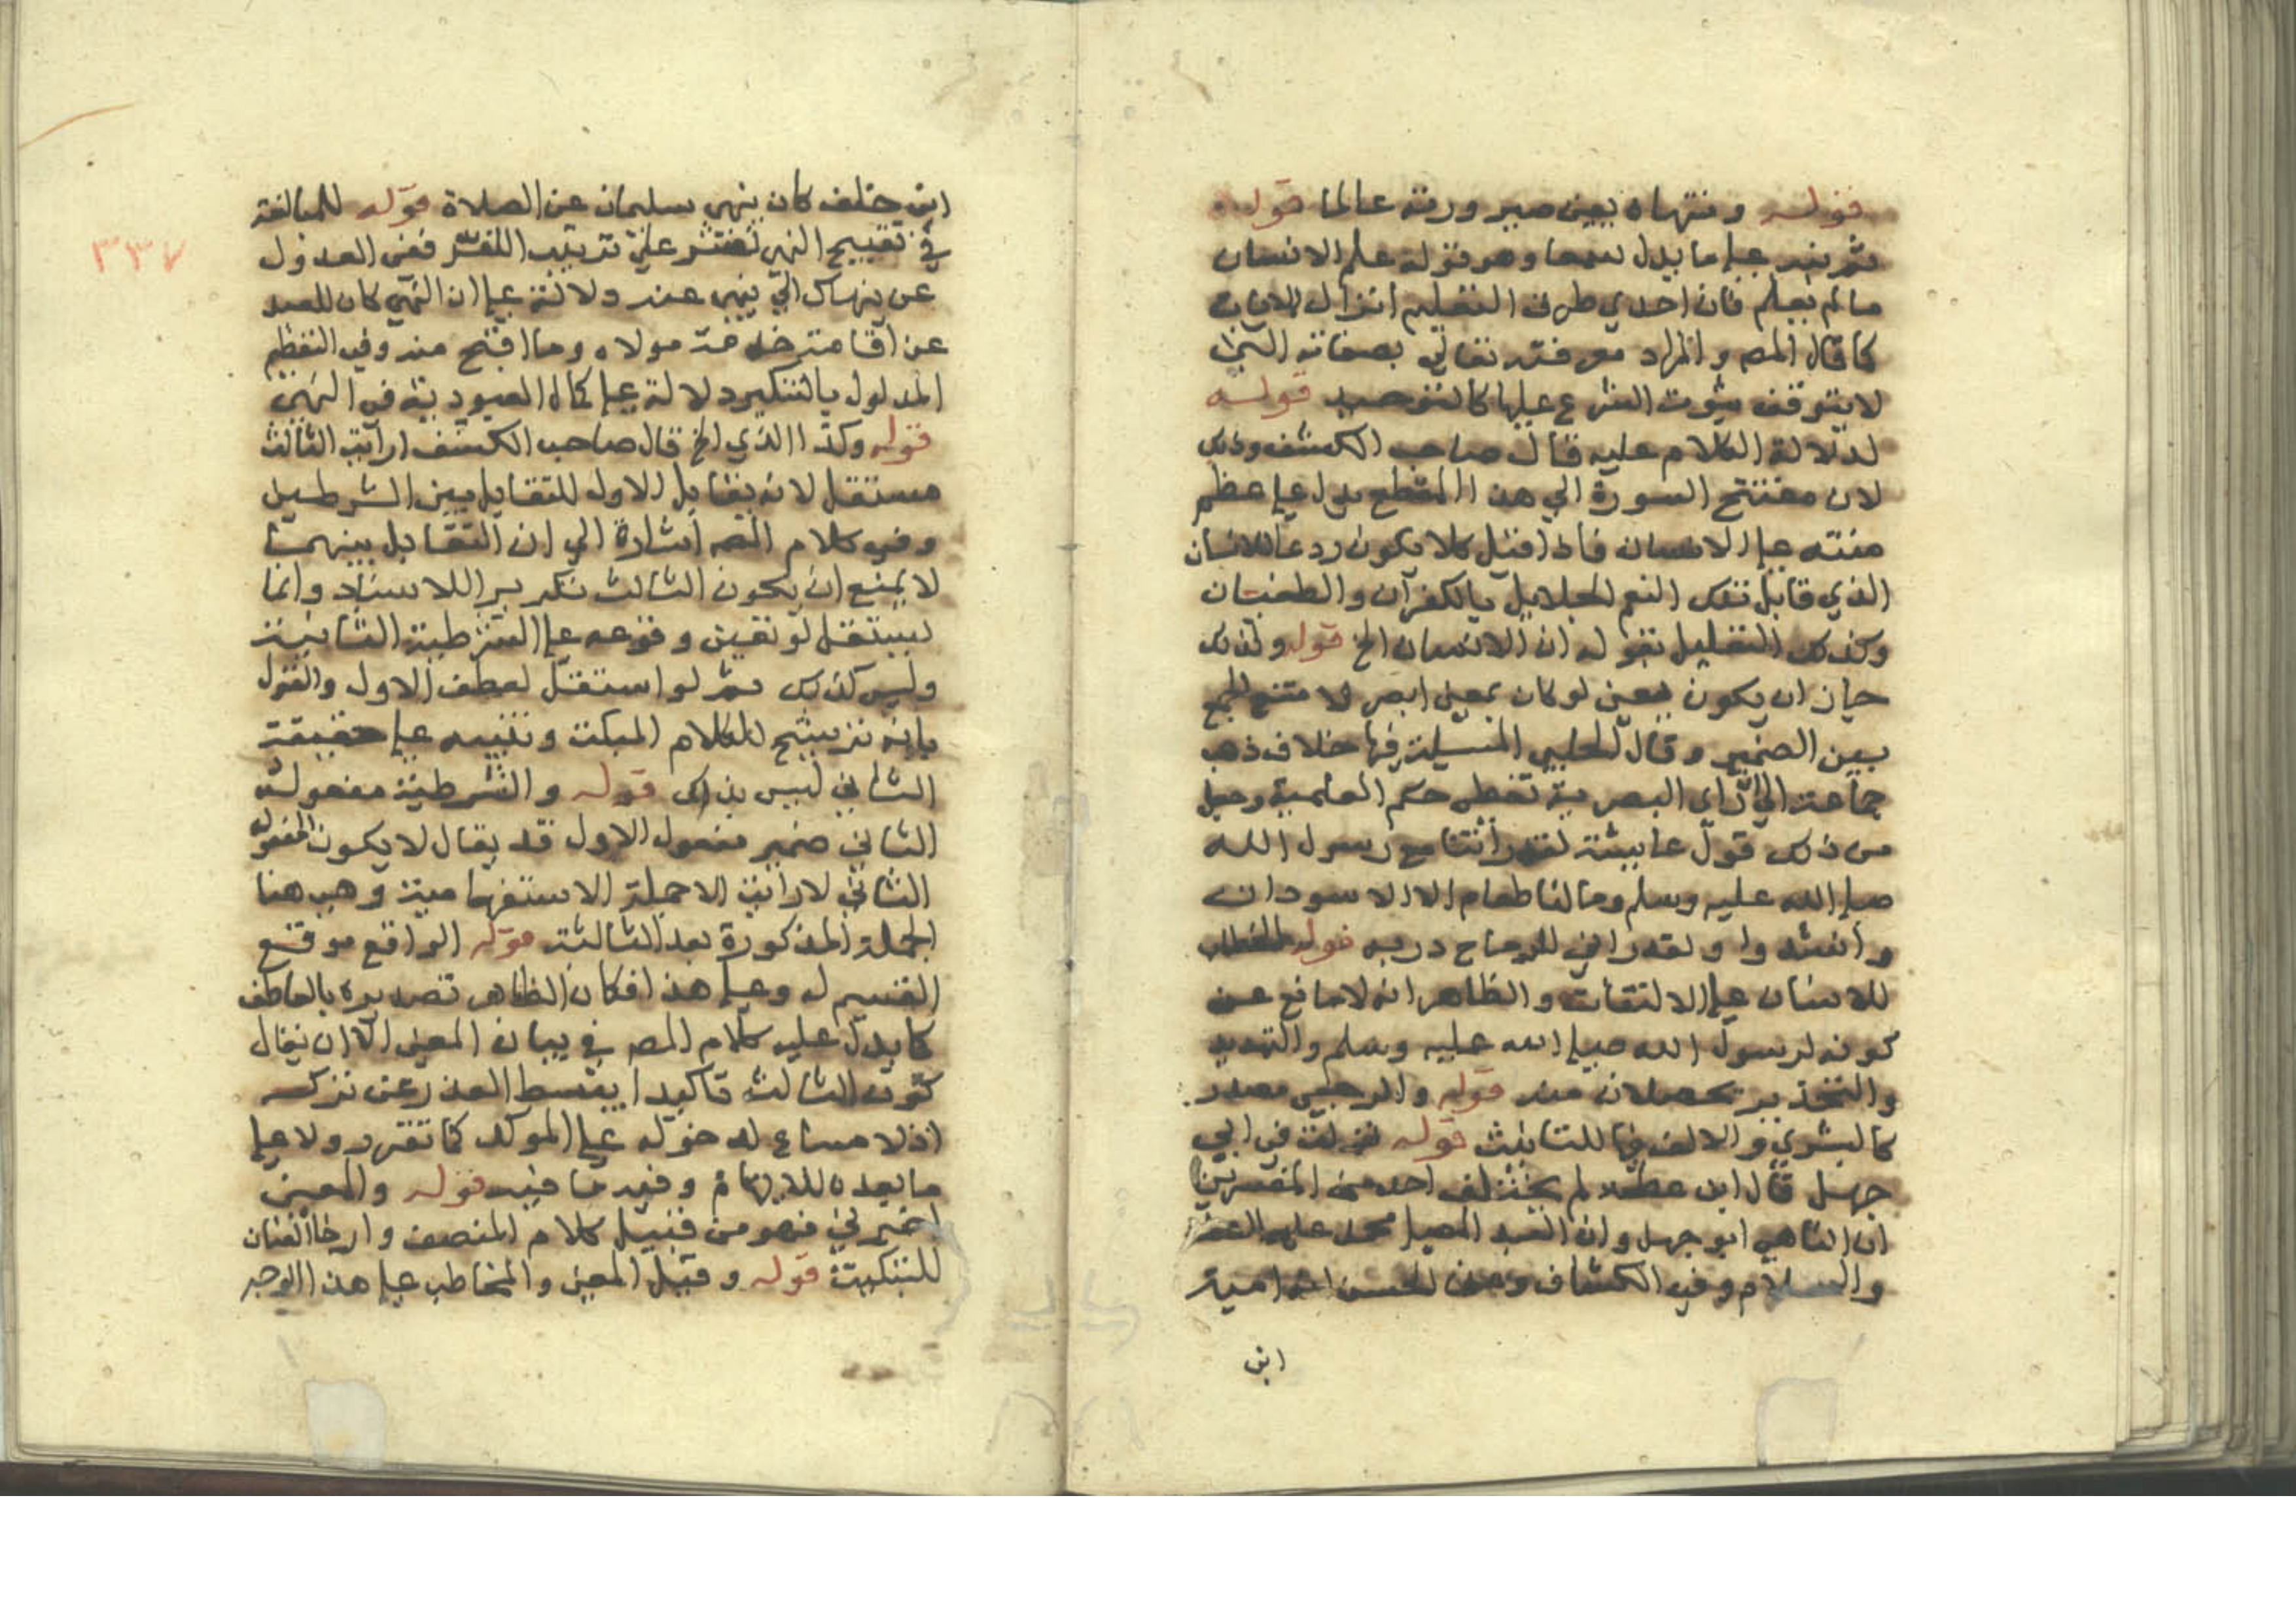 قوله ومنتهاه يعني صيرورته عالما قوله
ثم نبه على ما يدل سمعا وهو قوله علم الانسان
ما لم يعلم فان احدي طرق التعليم انزال الايات
كما قال المصـ والمراد معرفته تعالى بصفاته التي
لا يتوقف ثبوت الشرع عليها كالتوحيد قوله
لدلالة الكلام عليه قال صاحب الكشف وذلك
لان مفتتح السورة الي هذا المقطع يدل على عظم
منته على الانسان فاذا قيل كلا يكون ردعا للانسان
الذي قابل تلك النعم الجلايل بالكفران والطغيان
وكذلك التعليل بقوله ان الانسان الخ قوله ولذلك
جاز ان يكون يعني لو كان بمعنى ابصر لامتنع الجمع
بين الضمير وقال الحلبي المسيلة فيها خلاف ذهب
جماعة الي ان راي البصرية تعطى حكم العلمية وجعل
من ذلك قول عايشة لقد رأيتنا مع رسول الله
صلى الله عليه وسلم وما لنا طعام الا الاسودان
وانشدوا ولقد اراني للرماح دريه قوله الخطاب
للانسان على الالتفات والظاهر انه لا مانع عن
كونه لرسول الله صلى الله عليه وسلم والتهديد
والتحذير يحصلان منه قوله والرجعي مصدر
كالبشري والالف فيها للتانيث قوله نزلت في ابي
جهل قال ابن عطية لم يختلف احد من المفسرين
ان الناهي ابو جهل وان العبد المصلي محمد عليه
والسلام وفي الكشاف وعن الحسن انه امية
ابن
ابن خلف كان ينهي سلمان عن الصلاة قوله للمبالغة
في تقبيح النهي على ترتيب اللف ففي العدول
عن ينهاك الي ينهي عبد دلالة على ان النهي كان للعبد
عن اقامته خدمة مولاه وما اقبح منه وفي التعظيم
المدلول بالتنكير دلالة على كمال العبودية في النهي
قوله وكذا الذي الخ قال صاحب الكشف ارايت الثالث
مستقل لانه يقابل الاول للتقابل بين الشرطين
وفي كلام المصـ اشارة الي ان التقابل بينهما
لا يمنع ان يكون الثالث تكريرا للاسناد وانما
ليستقل لو تعين وقوعه على الشرطية الثانية
وليس كذلك ثم لو استقل لعطف الاول والقول
بانه ترشيح للكلام المبكت وتنبيه على حقيقة
الثاني ليس بذلك قوله والشرطية مفعوله
الثاني ضمير مفعول الاول قد يقال لا يكون المفعول
الثاني لارايت الا جملة الاستفهامية وهي هنا
الجملة المذكورة بعد الثالثة قوله الواقع موقع
القسيم له وعلى هذا فكان الظاهر تصديره بالعاطف
كما يدل عليه كلام المصـ في بيان المعنى الا ان يقال
كون الثالث تاكيدا يبسط العذر عن تركه
اذ لا مساغ لدخوله على الموكد كما تقرر ولا على
ما بعده للايهام وفيه ما فيه قوله والمعنى
اخبرني فهو من قبيل كلام المنصف وارخا العنان
للتبكيت قوله وقيل المعنى والمخاطب على هذا الوجه
٣٣٧